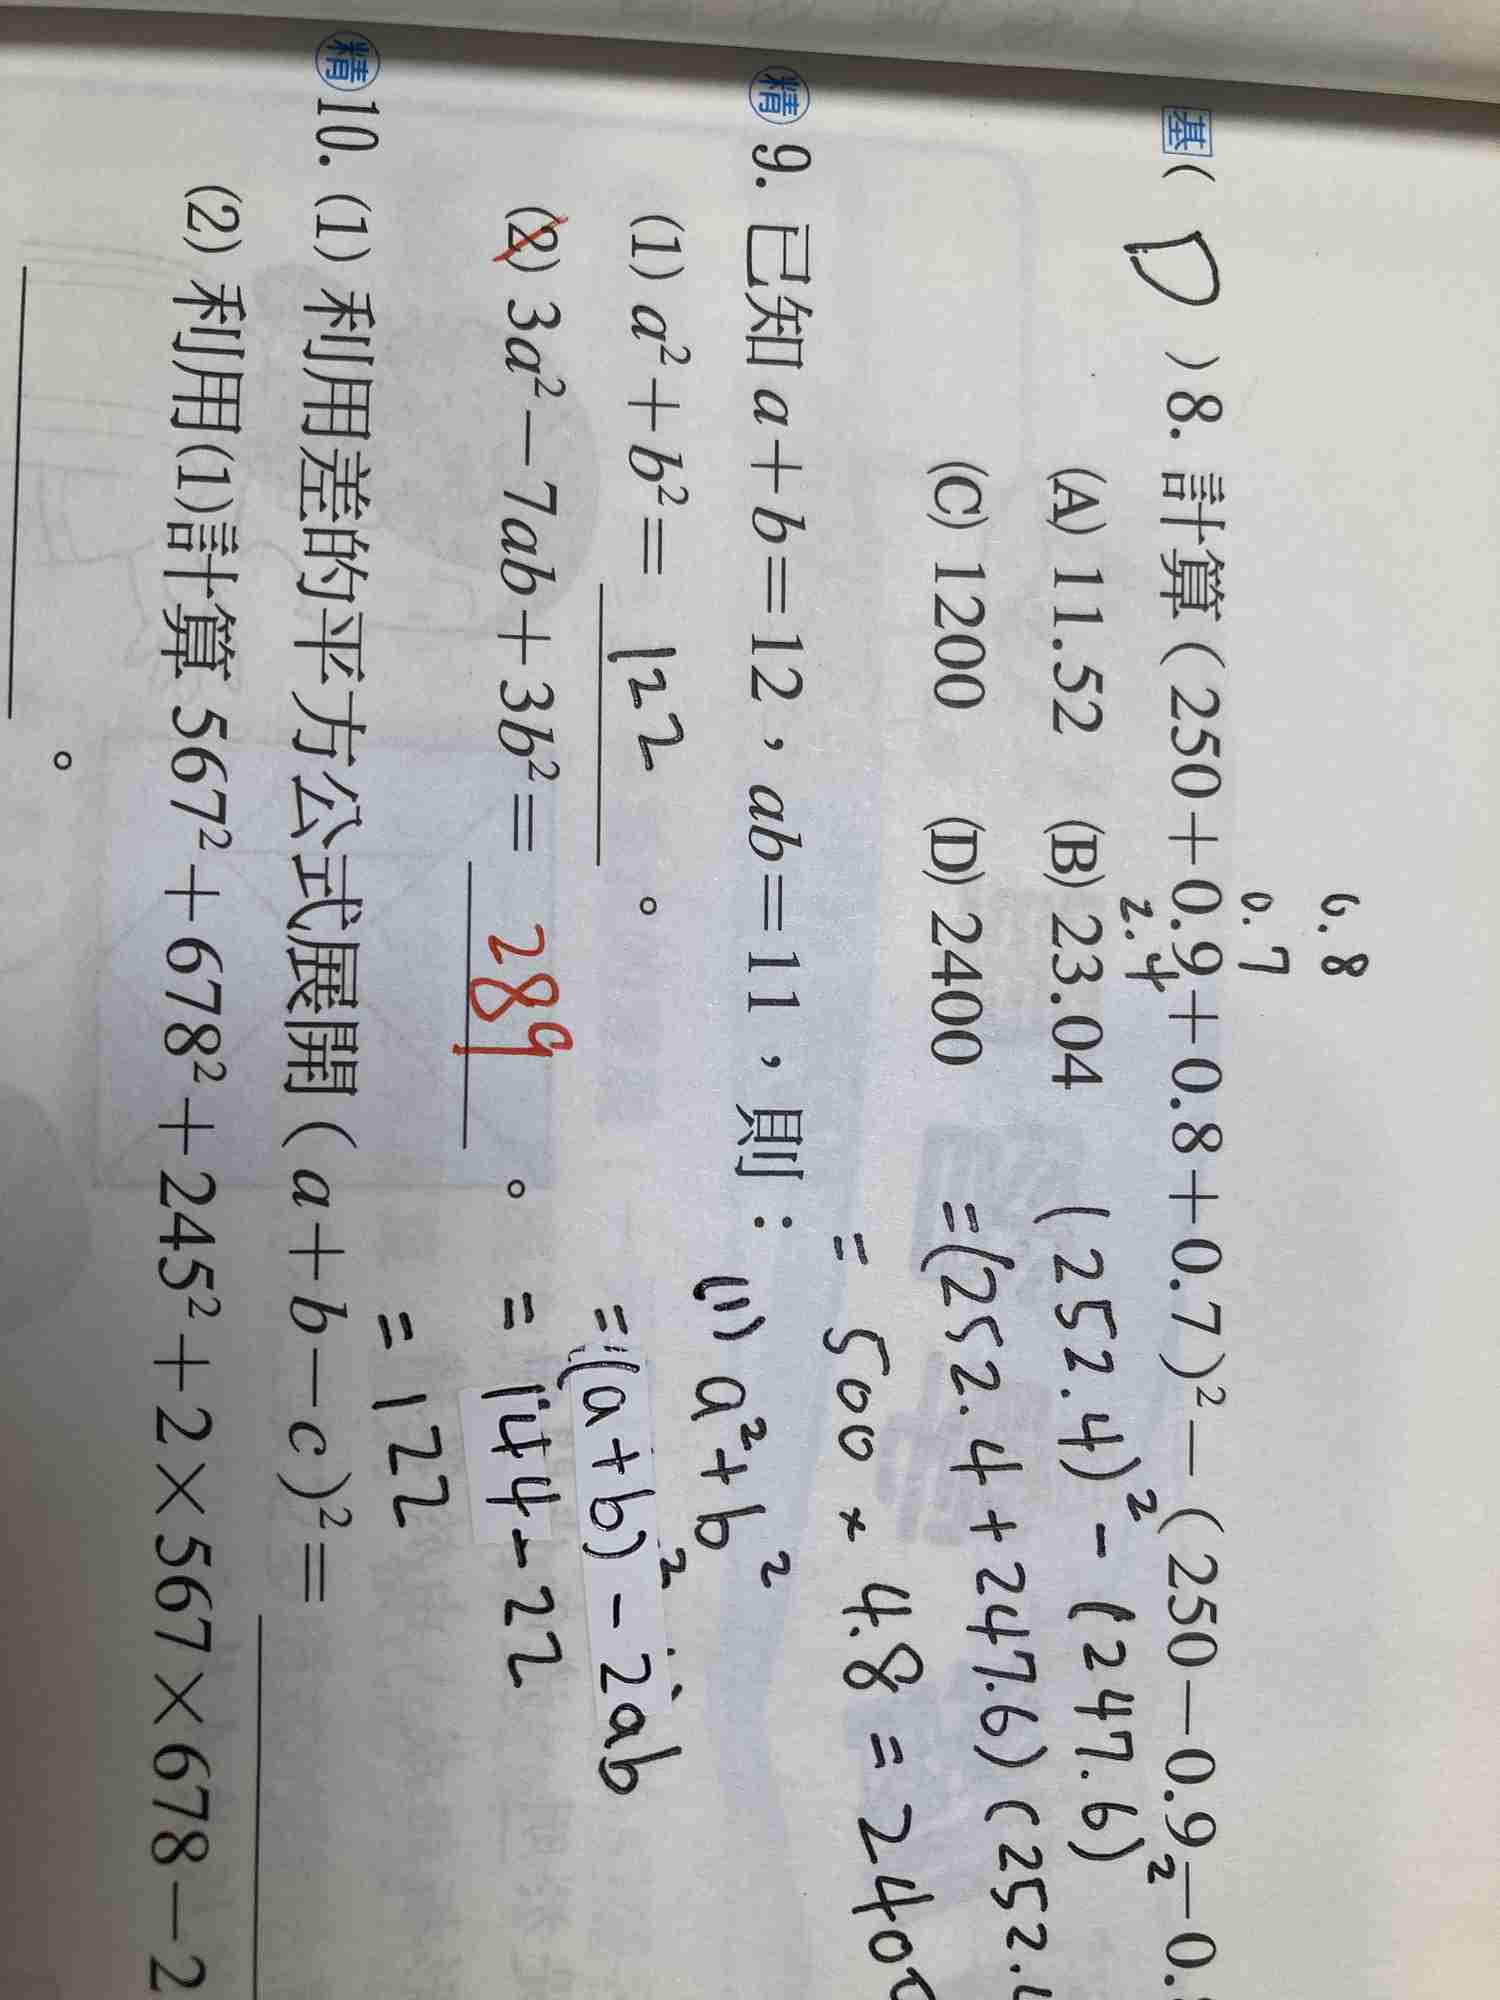 6.8
0.7
基( D )8. 計算(250+0.9+0.8+0.7)²-(250-0.9-0.
2.4
(A) 11.52 (B) 23.04
(C) 1200 (D) 2400
(252.4)²-(247.6)²
=(252.4+247.6)(252.4
=500×4.8=2400
精9. 已知a+b=12,ab=11,則:
(1) a²+b²= 122 。
(2) 3a²-7ab+3b²= 289 。
(1) a²+b²
=(a+b)²-2ab
=144-22
=122
精10. (1) 利用差的平方公式展開(a+b-c)²=
(2) 利用(1)計算567²+678²+245²+2×567×678-2
。